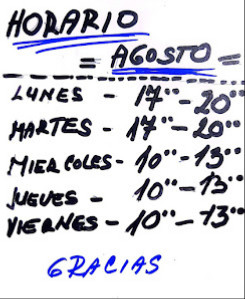 HORARIO
= AGOSTO =
LUNES - 17"-20"
MARTES - 17"-20"
MIERCOLES - 10"-13"
JUEVES - 10"-13"
VIERNES - 10"-13"
GRACIAS